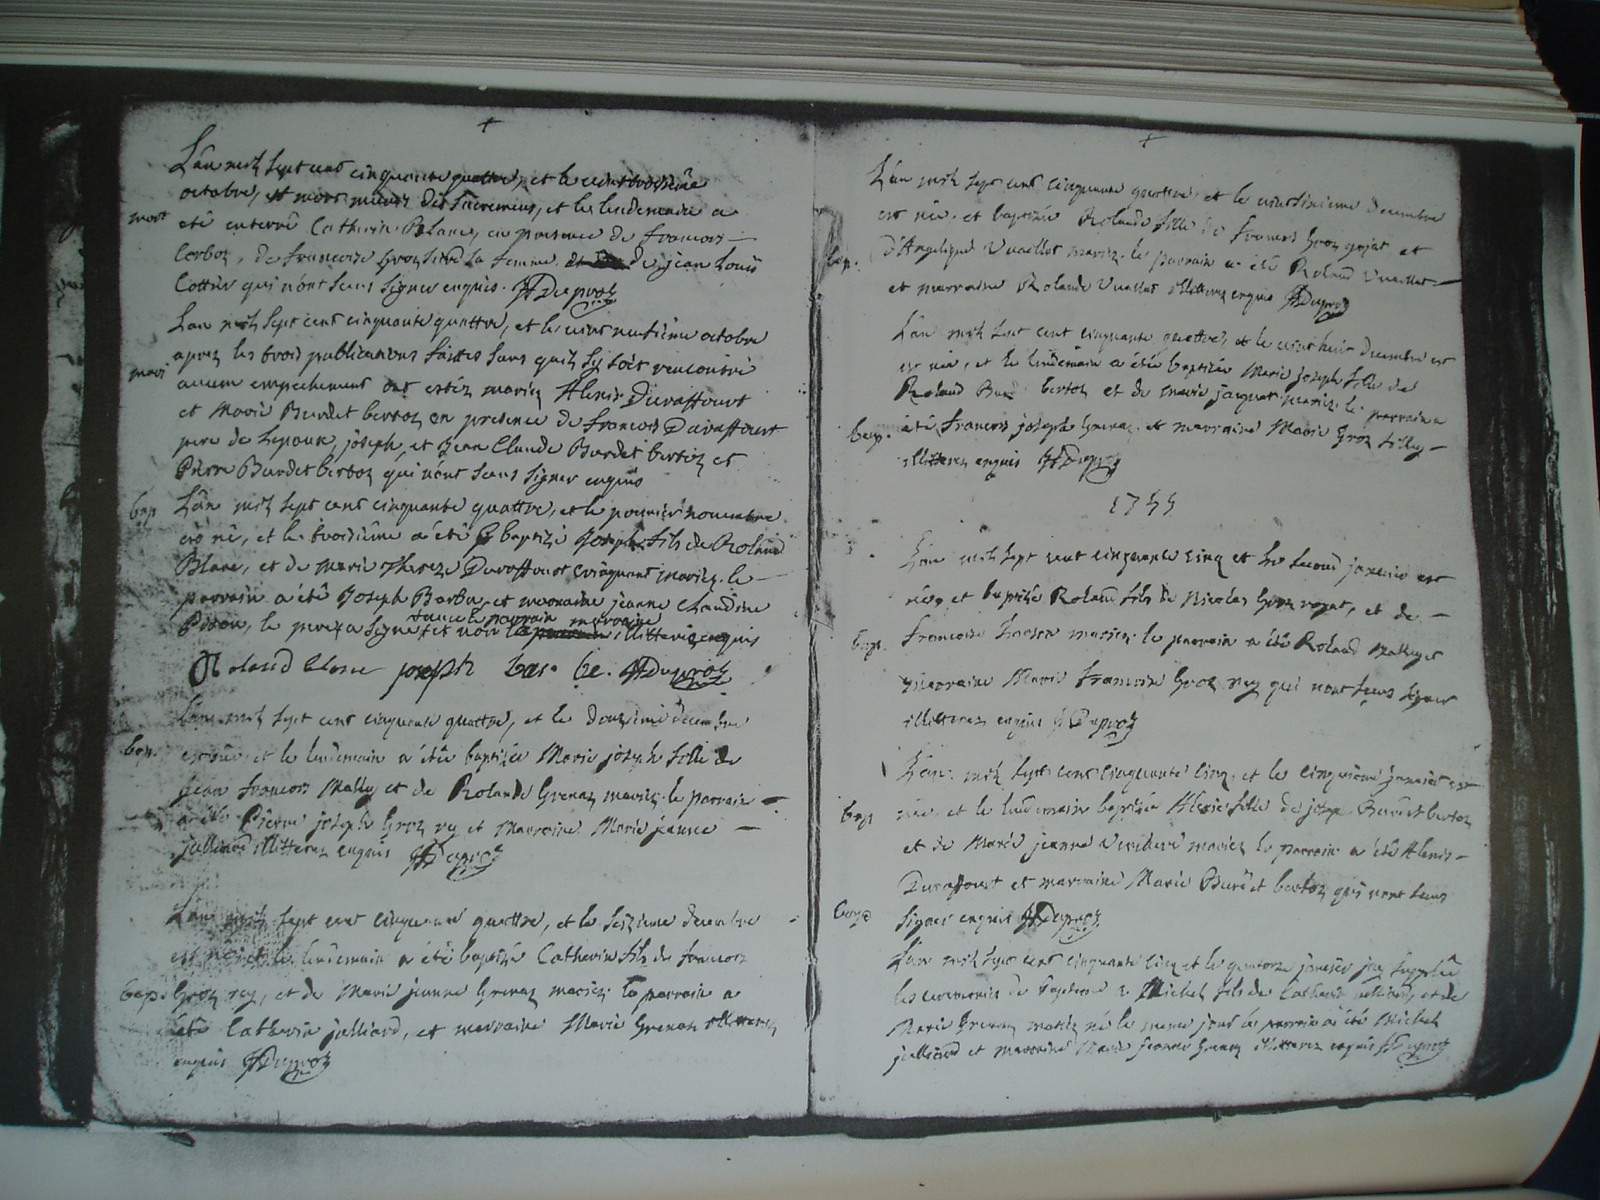 L'an mil sept cent cinquante quattre, et le vint troisième
octobre, est mort munis des sacremens, et le lendemain a
mort
été enterré Catherin Blanc, en presence de francois
Corboz, de francoise Groz sa femme de jean Louis
Cottier qui n'ont sceus signer enquis. Duproz
L'an mil sept cent cinquante quattre, et le vint neufième octobre
apres les trois publications faittes sans quil sy soit rencontré
mari
aucun empechement ont estéz mariez Alexis Duraffourt
et Marie Burdet bertoz en presence de francois Duraffourt
pere de l'epoux, joseph, et Jean Claude Burdet bertoz et
Pierre Burdet bertoz qui n'ont sceus signer enquis
bap
L'an mil sept cent cinquante quattre, et le premier novembre
est né, et le troisième a été baptizé joseph fils de Roland
Blanc, et de marie Thereze Duraffourt mariez. le
parrain a été Joseph Barbe, et marraine jeanne Claudine
le pere a signé et non la marraine illitterez enquis
Roland blanc joseph bar be. Duproz
L'an mil sept cent cinquante quattre, et le douzième decembre
bap.
est née et le lendemain a été baptizée Marie joseph fille de
jean francois Mally et de Rolande Grenaz mariez. le parrain
a été Pierre joseph Groz rey et Marraine Marie jeanne
julliard illitterez enquis Duproz
L'an mil sept cent cinquante quattre, et le seizieme decembre
est né et le lendemain a été baptizé Catherin fils de francois
bap.
Groz rey, et de Marie jeanne Grenaz mariez. le parrain a
été Catherin julliard, et marraine Marie Grenaz illitterez
enquis Duproz
L'an mil sept cent cinquante quattre, et le vint sixieme decembre
est née. et baptizée Rolande fille de francois Groz gojat et
bap.
d'Angelique Vuaillat mariez. le parrain a été Roland Vuaillat
et marraine Rolande Vuaillat illitterez enquis Duproz
L'an mil sept cent cinquante quattre, et le vint huit decembre est
est née, et le lendemain a été baptizée Marie joseph fille de
Roland Burdet bertoz et de marie jacquet mariez. le parrain a
bap.
été francois joseph Grenaz. et marraine Marie Groz tilly
illitterez enquis Duproz
1755
L'an mil sept cent cinquante cinq et le second janvier est
né, et baptizé Roland fils de Nicolas Groz rozat, et de
bap.
francoise mariez. le parrain a été Roland Mally et
marraine Marie francoise Groz rey qui n'ont sceus signer
illitterez enquis Duproz
L'an mil sept cent cinquante cinq, et le cinquième janvier est
bap
née et le lendemain baptizée Alexie fille de joseph Burdet bertoz
et de Marie jeanne mariez le parrain a été Alexis
Duraffourt et marraine Marie Burdet bertoz qui n'ont sceus
bap
signer enquis Duproz
L'an mil sept cent cinquante cinq et le quatorze janvier jay supplée
les ceremonies de bapteme a Michel fils de Catherin julliard, et de
Marie Grenaz mariez né le meme jour le parrain a été Michel
julliard et marraine Marie jeanne Grenaz illitterez enquis Duproz